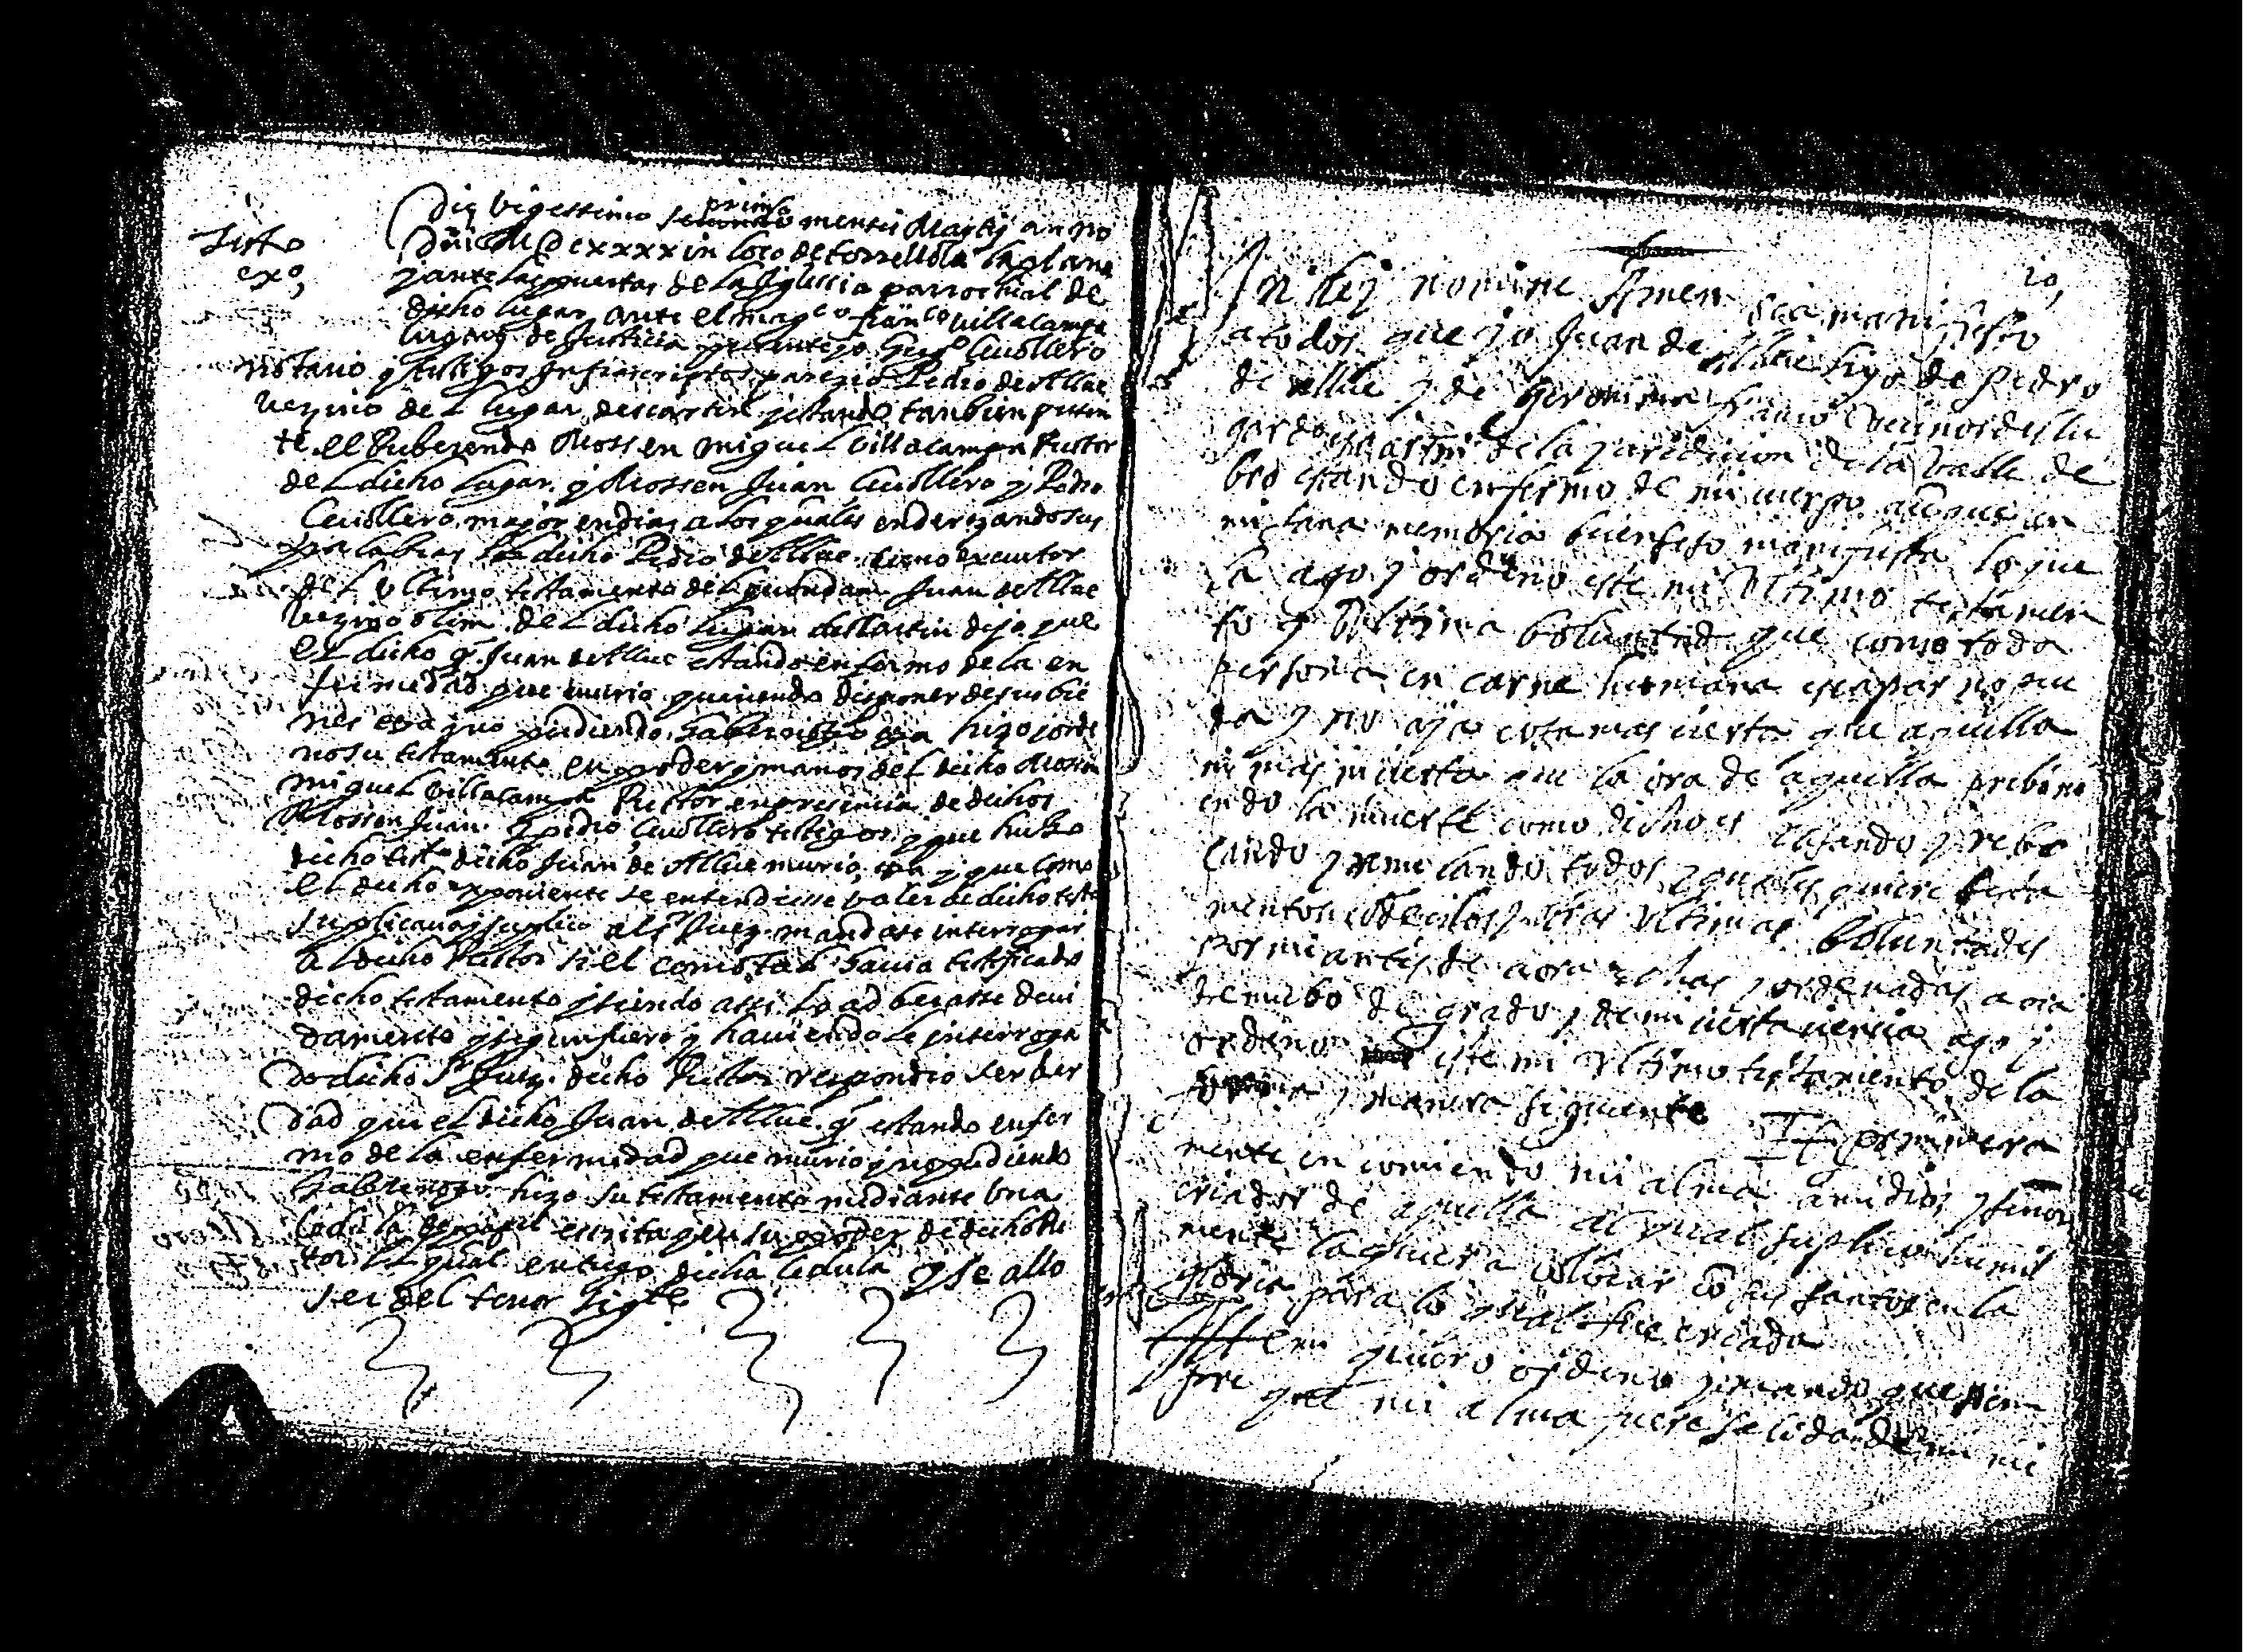 Testo
exo,
Die vigessimo primo mensis Martij anno
Dni MDCxxxx in loco de torrellola la plana
y ante las puertas de la Iglesia parrochial de
dicho lugar ante el magco Franco Villacampa
lugarte de Justicia presente yo Cuello­ro
notario y testigos infrascriptos parezio Pedro de Allue
vezino del lugar de scartin y estando tambien presen
te el Reberendo Mossen Miguel Villacampa Rector
del dicho lugar y Mossen Juan Cuellero y Pedro
Cuellero major en dias a los quales enderezando sus
palabras el dicho Pedro de Allue como executor
del ultimo testamento del quondam Juan de Allue
vezino olim del dicho lugar de scartin dijo que
el dicho q Juan de Allue estando enfermo de la en
fermedad que murio queriendo disponer de sus bie
nes no pudiendo haber hizo y orde
no su testamento en poder y manos del dicho Mossen
Miguel Villacampa Rector en presencia de dichos
Mossen Juan y pedro Cuellero testigos y que hecho
dicho testo dicho Juan de Allue murio y que como
el dicho exponiente se entendiesse valer de dicho testo
suplicava y suplico al Sr Juez mandase interrogar
al dicho Rector si el como tal havia testificado
dicho testamento y siendo assi lo adberasse devi
damente y segun fuero y haviendole interroga
do dicho Sr Juez dicho Rector respondio ser ber
dad que el dicho Juan de Allue q estando enfer
mo de la enfermedad que murio y no pudiendo
haber noto hizo su testamento mediante una
cedula de papel escrita y en su poder de dicho Re
tor el qual entrego dicha cedula y se allo
ser del tenor sigte
10,
In dey nomine Amen sea manifiesto
a todos que yo Juan de Allue hijo de Pedro
de Allue y de Geronima vecinos del lu
gar de scartin de la juridicion de la Valle de
bro estando enfermo de mi cuerpo aunque en
mi sana memoria buen seso manifiesta lo que
la ago y ordeno este mi ultimo testamen
to y ultima boluntad que como toda
persona en carne humana escapar no pue
da y no aya cosa mas cierta que aquella
ni mas incierta que la ora de aquella prebini
endo la muerte como dicho es casando y rebo
cando y anulando todos y quales quiere testa
mentos codecilos y otras ultimas boluntades
por mi antes de aora echas y ordenadas aora
de nuebo de grado y de mi cierta ciencia ago y
ordeno este mi ultimo testamento de la
forma y manera siguiente It primera
mente en comiendo mi alma a mi dios y señor
criador de aquella al qual suplico humil
mente la quiera colocar co sus santos en la
gloria para lo qual fue criada
Ittem quiero ordeno y mando que siem
pre que mi alma fuere salida de mi